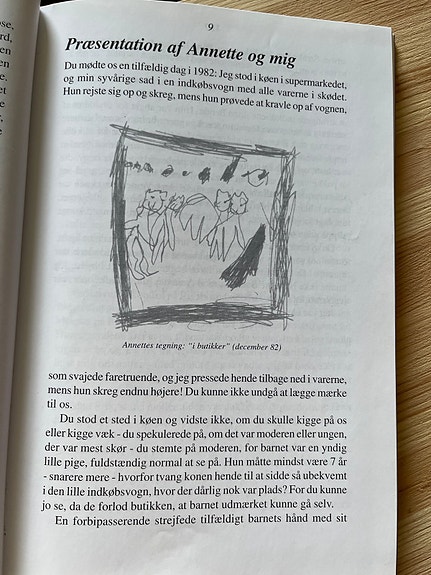 9
Præsentation af Annette og mig
Du mødte os en tilfældig dag i 1982: Jeg stod i køen i supermarkedet,
og min syvårige sad i en indkøbsvogn med alle varerne i skødet.
Hun rejste sig op og skreg, mens hun prøvede at kravle op af vognen,
Annettes tegning: "i butikker" (december 82)
som svajede faretruende, og jeg pressede hende tilbage ned i varerne,
mens hun skreg endnu højere! Du kunne ikke undgå at lægge mærke
til os.
Du stod et sted i køen og vidste ikke, om du skulle kigge på os
eller kigge væk - du spekulerede på, om det var moderen eller ungen,
der var mest skør - du stemte på moderen, for barnet var en yndig
lille pige, fuldstændig normal at se på. Hun måtte mindst være 7 år
- snarere mere - hvorfor tvang konen hende til at sidde så ubekvemt
i den lille indkøbsvogn, hvor der dårlig nok var plads? For du kunne
jo se, da de forlod butikken, at barnet udmærket kunne gå selv.
En forbipasserende strejfede tilfældigt barnets hånd med sit